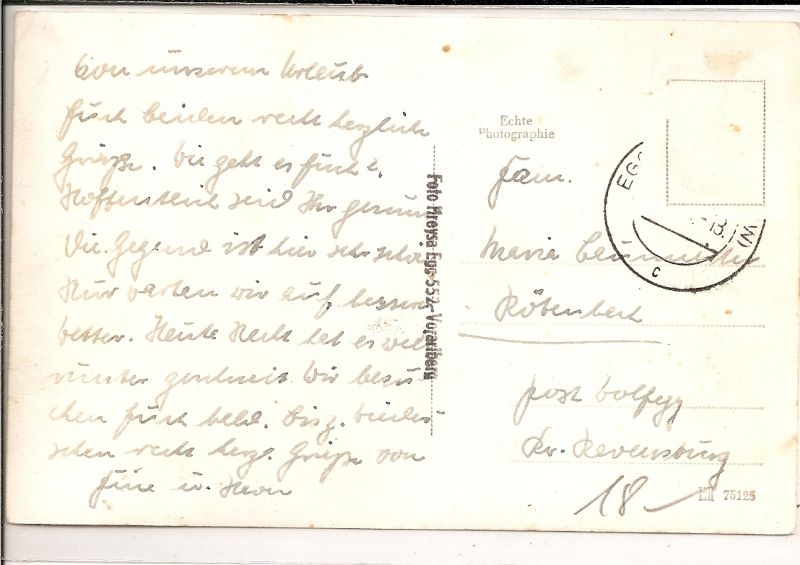 Von unserem Urlaub
Euch beiden recht herzliche
Grüße. Wie geht es Euch?
Hoffentlich seid Ihr gesund
Die Gegend ist hier sehr schön
Nur warten wir auf besseres
Wetter. Heute Nacht hat es weit
runter geschneit. Wir besu-
chen Euch bald. Bis z. Wieder-
sehen recht herzl. Grüße von
u.
Foto Egg 552, Vorarlberg
Echte
Photographie
EGG
c
Fam.
Maria
Rötenbach
Post Wolfegg
Kr. Ravensburg
18
75125